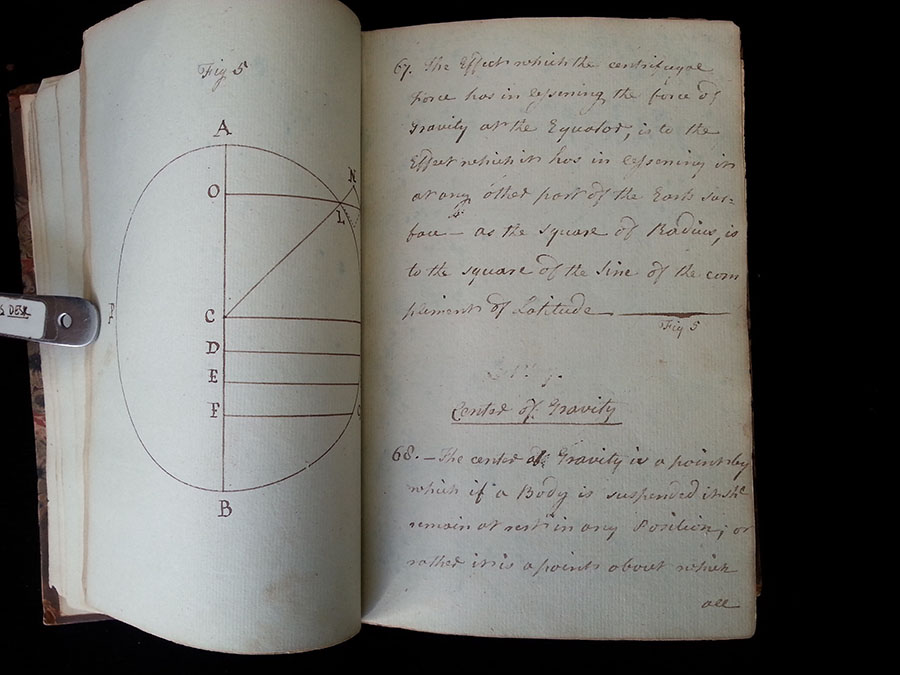 Fig 5
A
O
N
L
P
C
D
E
F
B
S DESK
67. The Effect which the centrifugal
Force has in lessening the force of
Gravity at the Equator, is to the
Effect which it has in lessening it
at any other part of the Earth sur=
face — as the square of Radius, is
to the square of the Sine of the com
pliment of Latitude
Fig 5
Centre of Gravity
68. — The center of Gravity is a point by
which if a Body is suspended it shd
remain at rest in any Position; or
rather it is a point about which
all